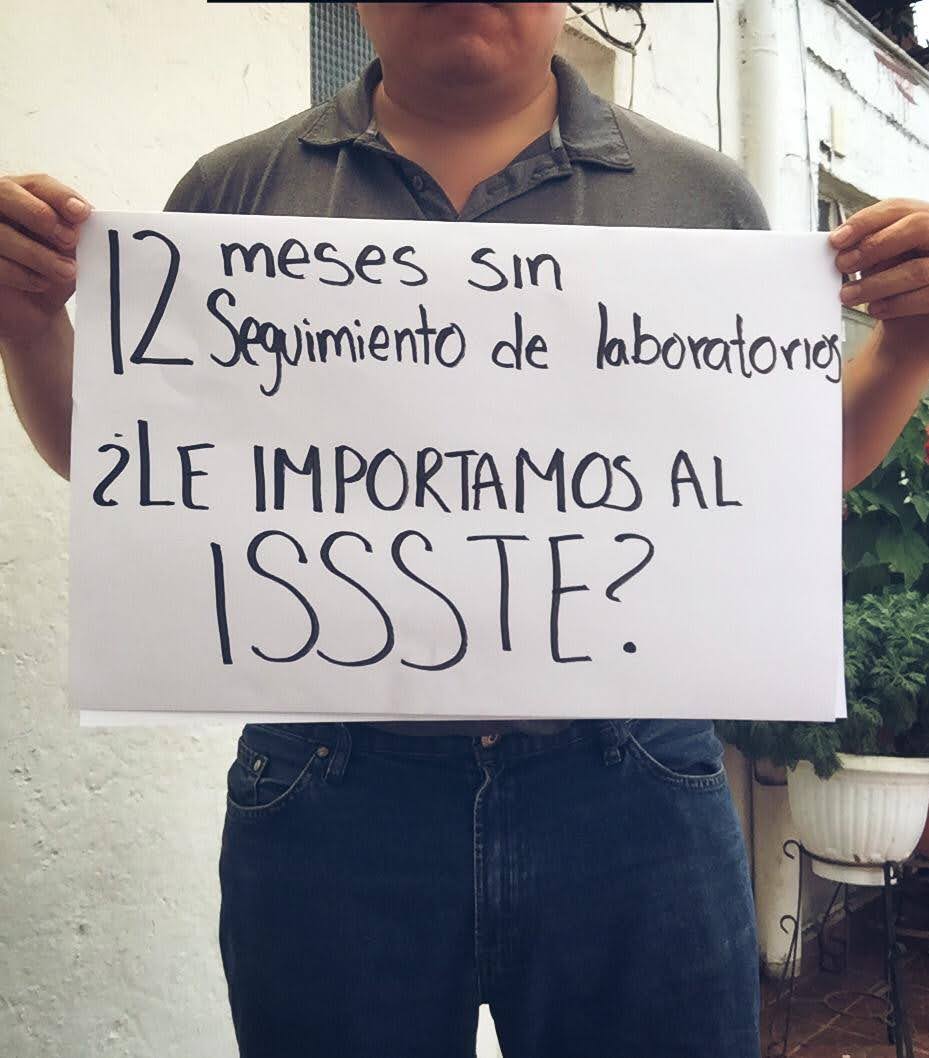 12 meses sin
Seguimiento de laboratorios
¿LE IMPORTAMOS AL
ISSSTE?